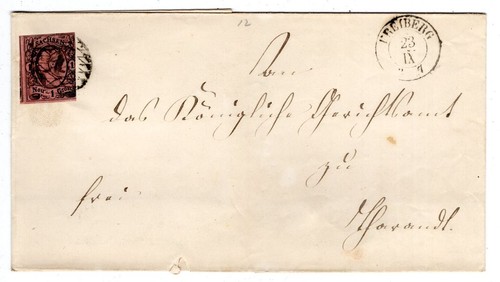 12
FREIBERG
23
IX
SACHSEN
Neu- 1 Grosch.
An
das Königliche Gerichtsamt
zu
frei
Tharandt.